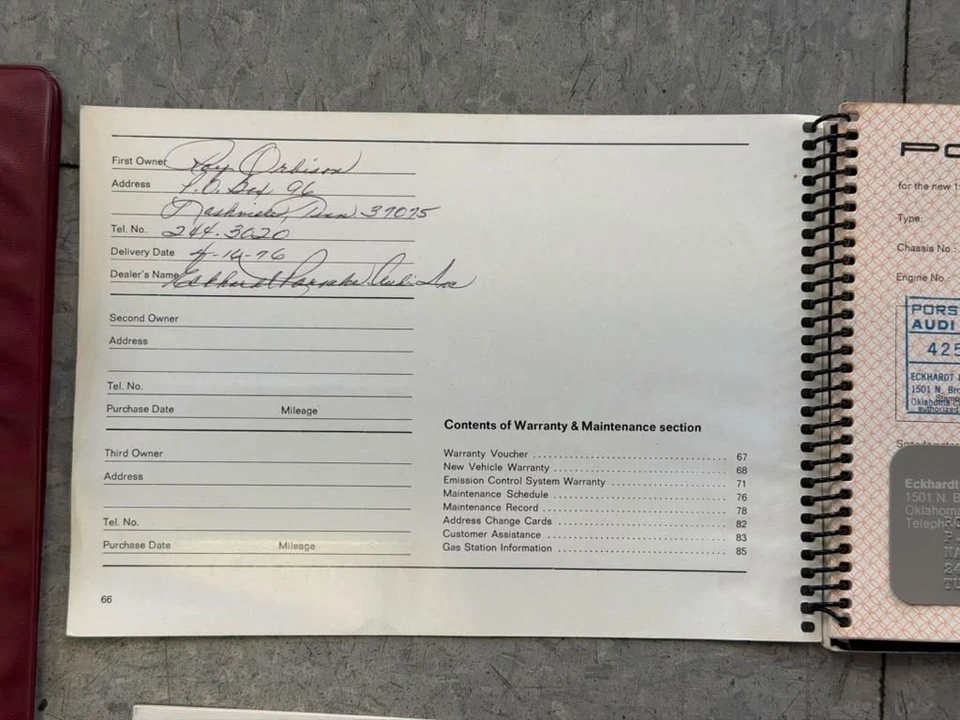 First Owner Roy Orbison
Address P.O. Box 96
Nashville, Tenn 37075
Tel. No. 244-3020
Delivery Date 4-14-76
Dealer's Name Eckhardt Porsche Audi Inc
Second Owner
Address
Tel. No.
Purchase Date Mileage
Third Owner
Address
Tel. No.
Purchase Date Mileage
Contents of Warranty & Maintenance section
Warranty Voucher 67
New Vehicle Warranty 68
Emission Control System Warranty 71
Maintenance Schedule 76
Maintenance Record 78
Address Change Cards 82
Customer Assistance 83
Gas Station Information 85
66
PO
for the new 1
Type:
Chassis No.:
Engine No.:
PORS
AUDI
425
ECKHARDT
1501 N. Bro
Oklahoma C
authorized
Eckhardt
1501 N. B
Oklahoma
Teleph
RO
P.
NA
24
TU